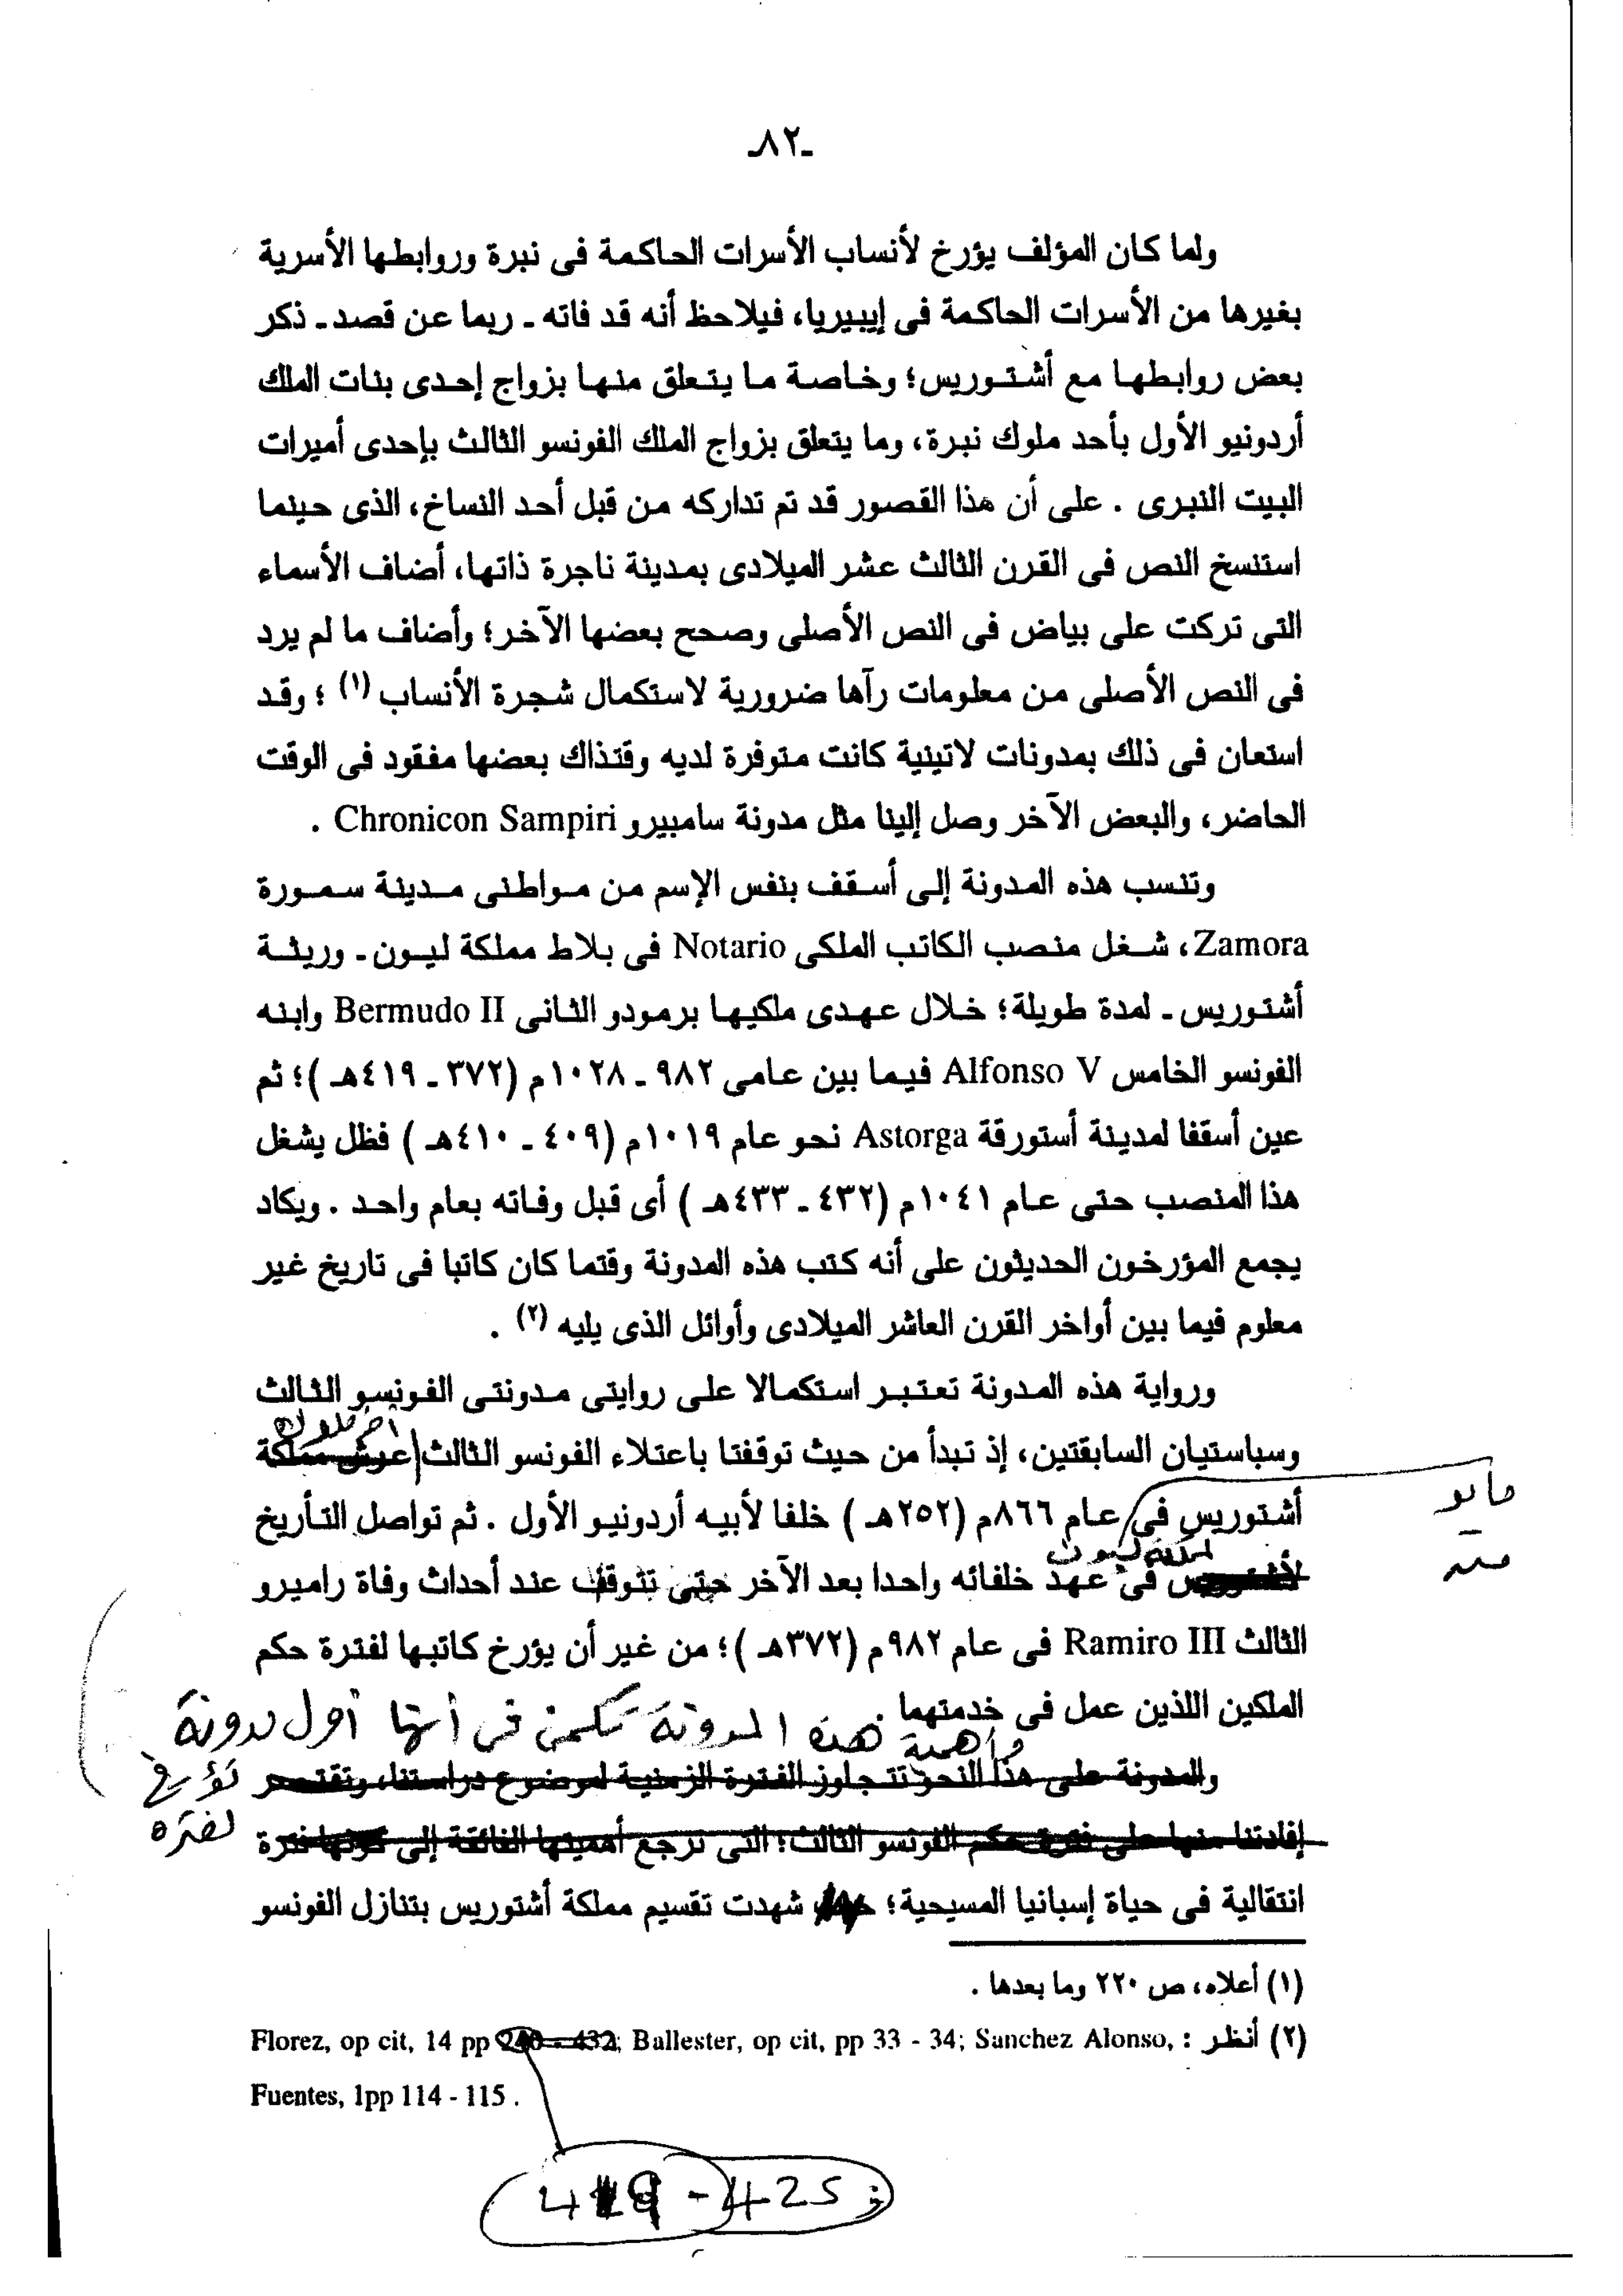 ـ٨٢ـ
ولما كان المؤلف يؤرخ لأنساب الأسرات الحاكمة فى نبرة وروابطها الأسرية
بغيرها من الأسرات الحاكمة فى إيبيريا، فيلاحظ أنه قد فاته ـ ربما عن قصد ـ ذكر
بعض روابطها مع أشتوريس؛ وخاصة ما يتعلق منها بزواج إحدى بنات الملك
أردونيو الأول بأحد ملوك نبرة، وما يتعلق بزواج الملك الفونسو الثالث بإحدى أميرات
البيت النبرى . على أن هذا القصور قد تم تداركه من قبل أحد النساخ، الذى حينما
استنسخ النص فى القرن الثالث عشر الميلادى بمدينة ناجرة ذاتها، أضاف الأسماء
التى تركت على بياض فى النص الأصلى وصحح بعضها الآخر؛ وأضاف ما لم يرد
فى النص الأصلى من معلومات رآها ضرورية لاستكمال شجرة الأنساب (١) ؛ وقد
استعان فى ذلك بمدونات لاتينية كانت متوفرة لديه وقتذاك بعضها مفقود فى الوقت
الحاضر، والبعض الآخر وصل إلينا مثل مدونة سامبيرو Chronicon Sampiri .
وتنسب هذه المدونة إلى أسقف بنفس الإسم من مواطنى مدينة سمورة
Zamora، شغل منصب الكاتب الملكى Notario فى بلاط مملكة ليون ـ وريثة
أشتوريس ـ لمدة طويلة؛ خلال عهدى ملكيها برمودو الثانى Bermudo II وابنه
الفونسو الخامس Alfonso V فيما بين عامى ٩٨٢ ـ ١٠٢٨م (٣٧٢ ـ ٤١٩هـ )؛ ثم
عين أسقفا لمدينة أستورقة Astorga نحو عام ١٠١٩م (٤٠٩ ـ ٤١٠هـ ) فظل يشغل
هذا المنصب حتى عام ١٠٤١م (٤٣٢ ـ ٤٣٣هـ ) أى قبل وفاته بعام واحد . ويكاد
يجمع المؤرخون الحديثون على أنه كتب هذه المدونة وقتما كان كاتبا فى تاريخ غير
معلوم فيما بين أواخر القرن العاشر الميلادى وأوائل الذى يليه (٢) .
ورواية هذه المدونة تعتبر استكمالا على روايتى مدونتى الفونسو الثالث
آخر ملوك
وسباستيان السابقتين، إذ تبدأ من حيث توقفتا باعتلاء الفونسو الثالث عرش مملكة
مايو
أشتوريس فى عام ٨٦٦م (٢٥٢هـ ) خلفا لأبيه أردونيو الأول . ثم تواصل التأريخ
لمملكة ليون
لأشتوريس فى عهد خلفائه واحدا بعد الآخر حتى تتوقف عند أحداث وفاة راميرو
الثالث Ramiro III فى عام ٩٨٢م (٣٧٢هـ )؛ من غير أن يؤرخ كاتبها لفترة حكم
الملكين اللذين عمل فى خدمتهما .
وأهمية هذه المدونة تكمن فى أنها أول مدونة
تؤرخ
لفترة
والمدونة على هذا النحو تتجاوز الفترة الزمنية لموضوع دراستنا، وتقتصر
إفادتنا منها على فترة حكم الفونسو الثالث؛ التى ترجع أهميتها الفائقة إلى كونها فترة
انتقالية فى حياة إسبانيا المسيحية؛ شهدت تقسيم مملكة أشتوريس بتنازل الفونسو
(١) أعلاه، ص ٢٢٠ وما بعدها .
(٢) أنظر : Florez, op cit, 14 pp 432; Ballester, op cit, pp 33 - 34; Sanchez Alonso,
Fuentes, 1pp 114 - 115 .
419 - 425 ;